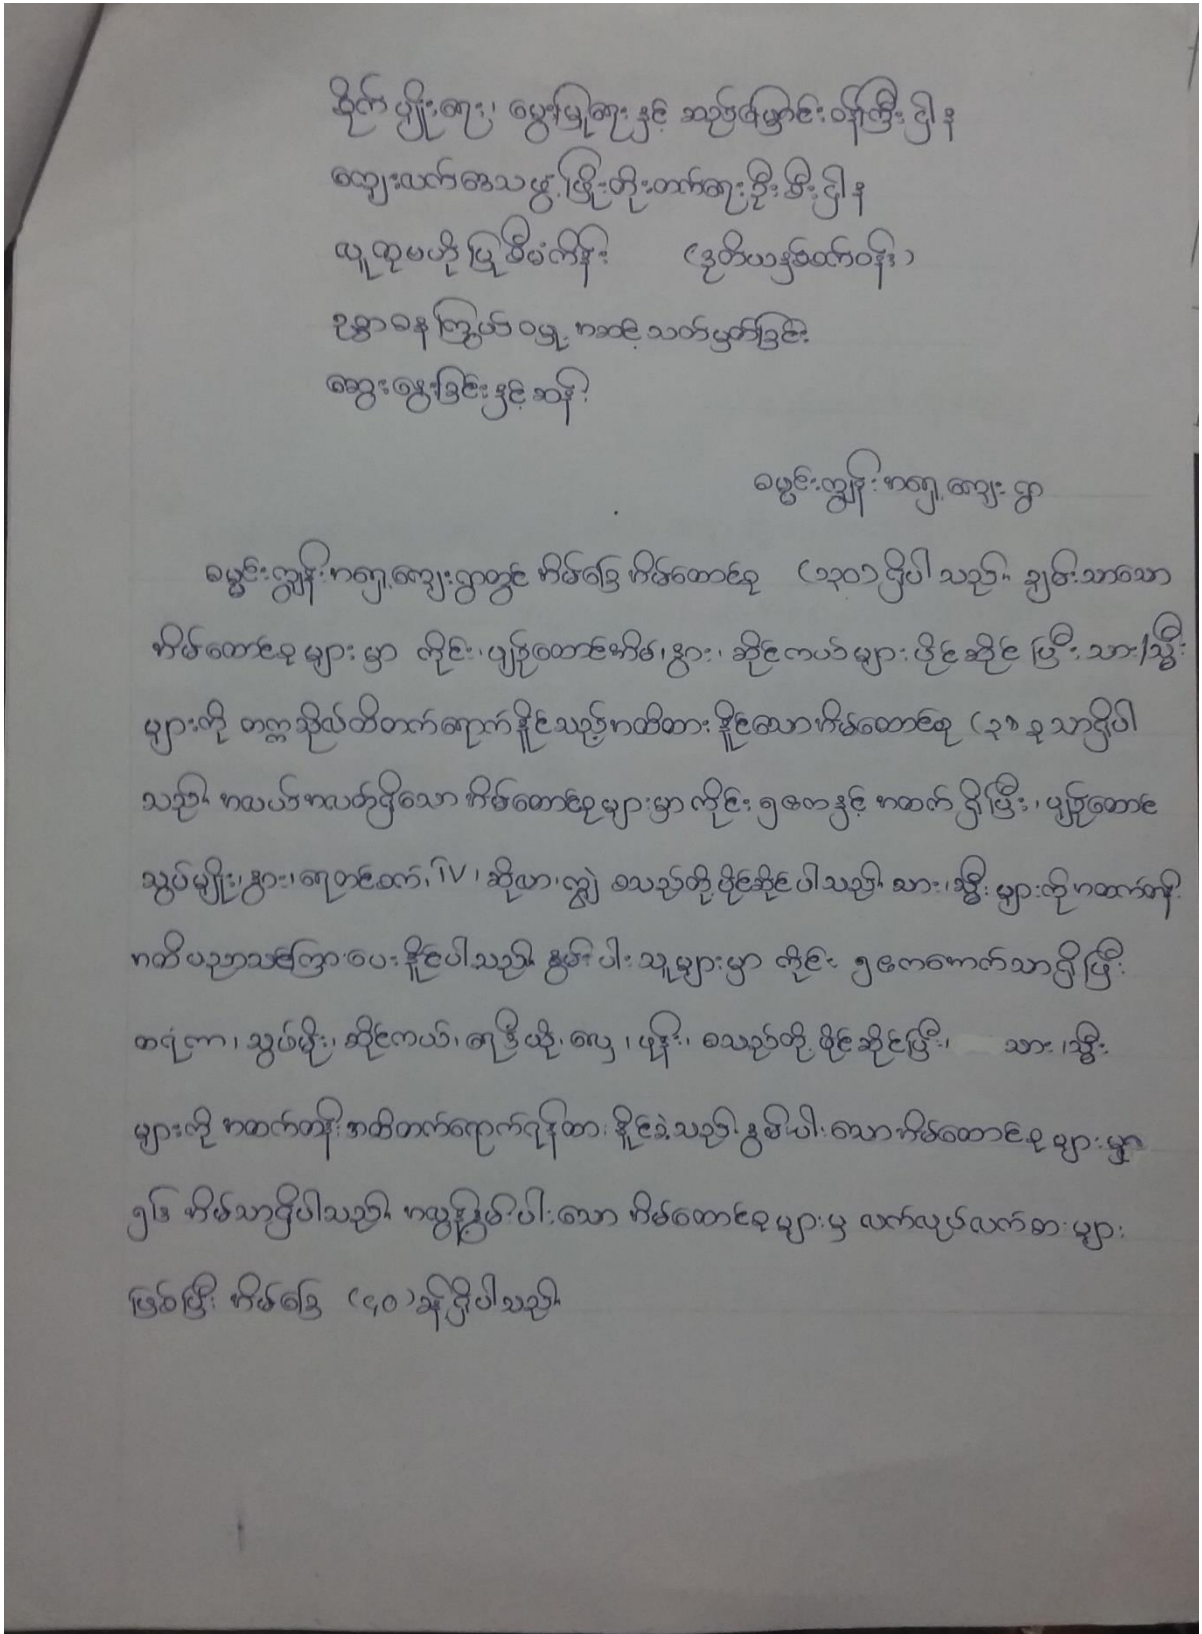 စိုက်ပျိုးရေး၊ မွေးမြူရေးနှင့် ဆည်မြောင်းဝန်ကြီးဌာန
ကျေးလက်ဒေသဖွံ့ဖြိုးတိုးတက်ရေးဦးစီးဌာန
လူထုဗဟိုပြုစီမံကိန်း (ဒုတိယနှစ်ထပ်ဝန်း)
ဥစ္စာဓနကြွယ်ဝမှု အဆင့်သတ်မှတ်ခြင်း
ဆွေးနွေးခြင်းနှင့်ဆန်း
ဓမ္မင်းကျွန်းအရှေ့ကျေးရွာ
ဓမ္မင်းကျွန်းအရှေ့ကျေးရွာတွင် အိမ်ခြေ အိမ်ထောင်စု (၁၃၀) ရှိပါသည်။ ချမ်းသာသော
အိမ်ထောင်စုများမှာ ကိုင်း၊ ပျဉ်ထောင်အိမ်၊ နွား၊ ဆိုင်ကယ်များ ပိုင်ဆိုင်ပြီး သား/သ္မီး
များကို တက္ကသိုလ်ထိတက်ရောက်နိုင်သည့်အထိထားနိုင်သောအိမ်ထောင်စု (၃) ခုသာရှိပါ
သည်။ အလယ်အလတ်ရှိသော အိမ်ထောင်စုများမှာ ကိုင်း ၅ ဧကနှင့် အထက် ရှိပြီး၊ ပျဉ်ထောင်
သွပ်မျိုး၊ နွား၊ ရေတင်စက်၊ TV ၊ ဆိုလာ၊ ကျွဲ စသည်တို့ ပိုင်ဆိုင်ပါသည်။ သား၊ သ္မီးများကို အထက်တန်း
အထိ ပညာသင်ကြားပေးနိုင်ပါသည်။ နွမ်းပါးသူများမှာ ကိုင်း ၅ ဧကအောက်သာရှိပြီး
ထရံကာ၊ သွပ်မိုး၊ ဆိုင်ကယ်၊ ရေဒီယို၊ လှေ ၊ ဖုန်း၊ စသည်တို့ ပိုင်ဆိုင်ပြီး၊ သား ၊ သ္မီး
များကို အထက်တန်းအထိတက်ရောက်ရန်ထားနိုင်ခဲ့သည်။ နွမ်းပါးသောအိမ်ထောင်စုများမှာ
အိမ်သာရှိပါသည်။ အလွန်နွမ်းပါးသော အိမ်ထောင်စုများမှ လက်လုပ်လက်စားများ
ဖြစ်ပြီး အိမ်ခြေ (၄၀) ခန့်ရှိပါသည်။